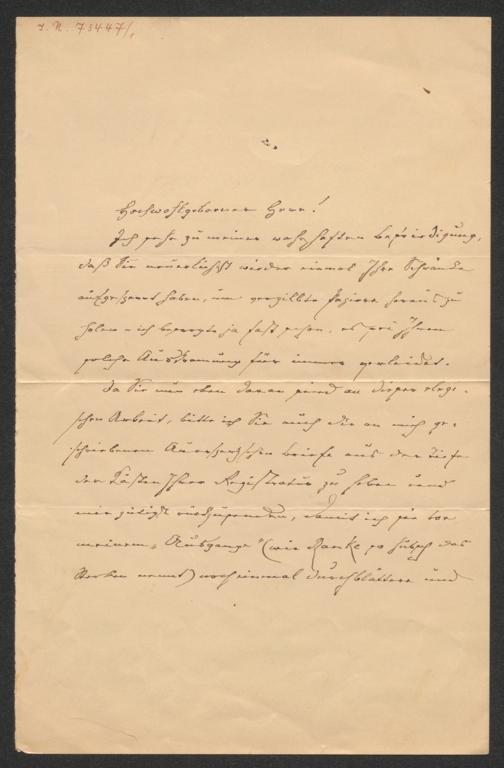 I. N. 78447/1
Hochwohlgeborner Herr!
Ich sehe zu meiner wahrhaften Befriedigung,
daß Sie neuerlichst wieder einmal Ihre Schränke
aufgesperrt haben, um vergilbte Papiere heraus zu
holen – ich besorgte ja fast schon, es sei Ihnen
solche Auskramung für immer verleidet.
Da Sie nun eben daran sind an dieser elegi-
schen Arbeit, bitte ich Sie auch die an mich ge-
schriebenen Auerspergschen Briefe aus der Tiefe
der Kästen Ihrer Registratur zu heben und
mir gütigst rückzusenden, damit ich sie vor
meinem „Ausgange" (wie Ranke so hübsch das
Sterben nennt) noch einmal durchblättere und